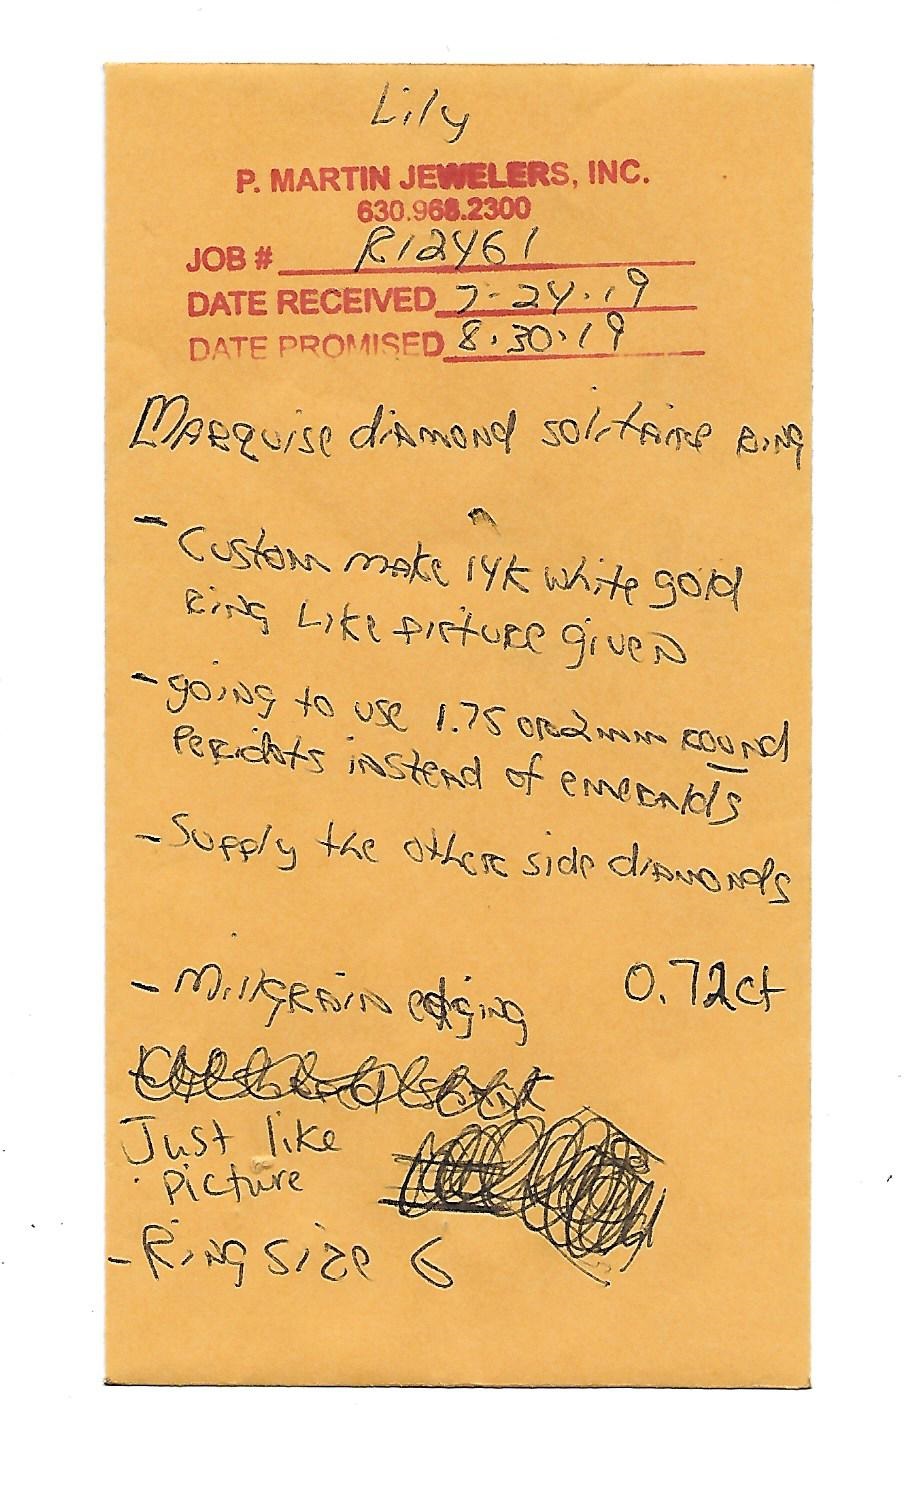 Lily
P. MARTIN JEWELERS, INC.
630.968.2300
JOB # R12461
DATE RECEIVED 7-24-19
DATE PROMISED 8.30.19
Marquise diamond solitaire Ring
- Custom make 14k white gold
Ring Like picture given
- going to use 1.75 or 2mm round
Peridots instead of emeralds
- Supply the other side diamonds
- Milkgrain edging 0.72ct
Just like
Picture
- Ring size 6